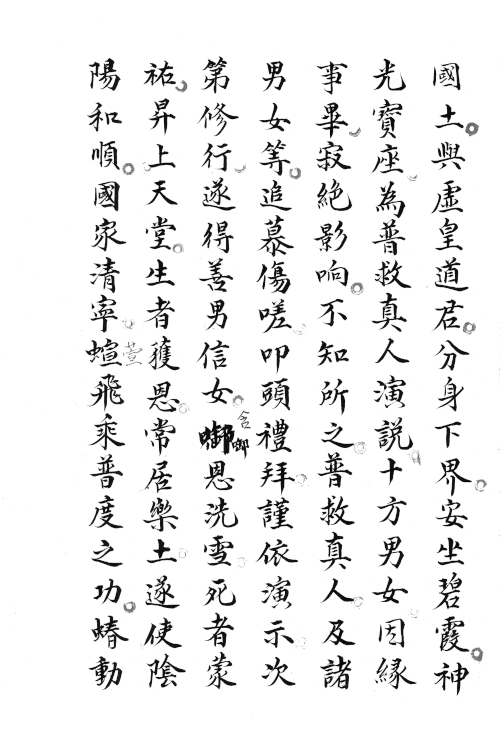 國土與虛皇道君分身下界安坐碧霞神
光寶座為普救真人演說十方男女因緣
事畢寂絕影响不知所之普救真人及諸
男女等追慕傷嗟叩頭禮拜謹依演示次
第修行遂得善男信女啣恩洗雪死者蒙
含
啣
祐昇上天堂生者獲恩常居樂土遂使陰
陽和順國家清寧蝖飛乘普度之功蝽動
萱